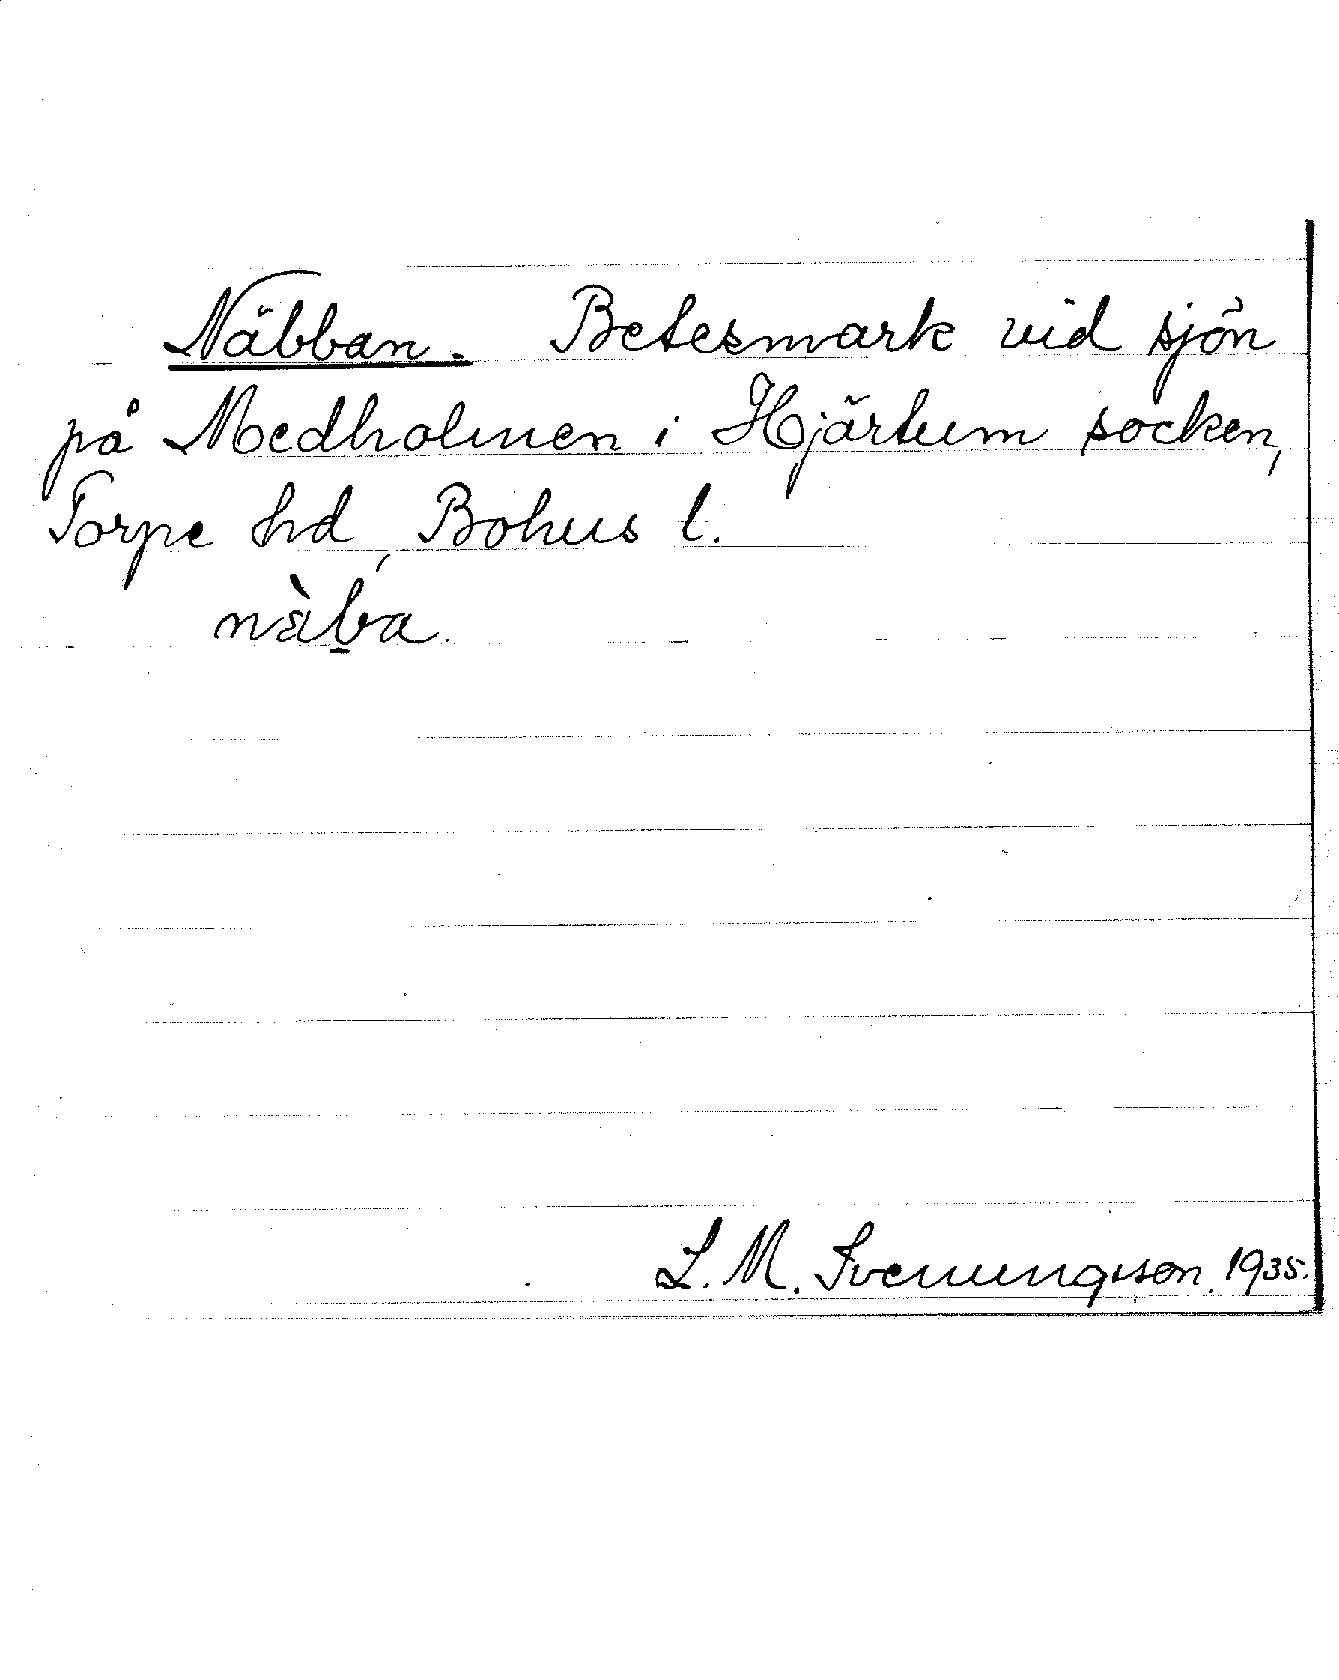 Näbban. Betesmark vid sjön
på Medholmen i Hjärtum socken,
Torpe hd, Bohus l.
nàb̲a
L. M. Svenungsson. 1935.